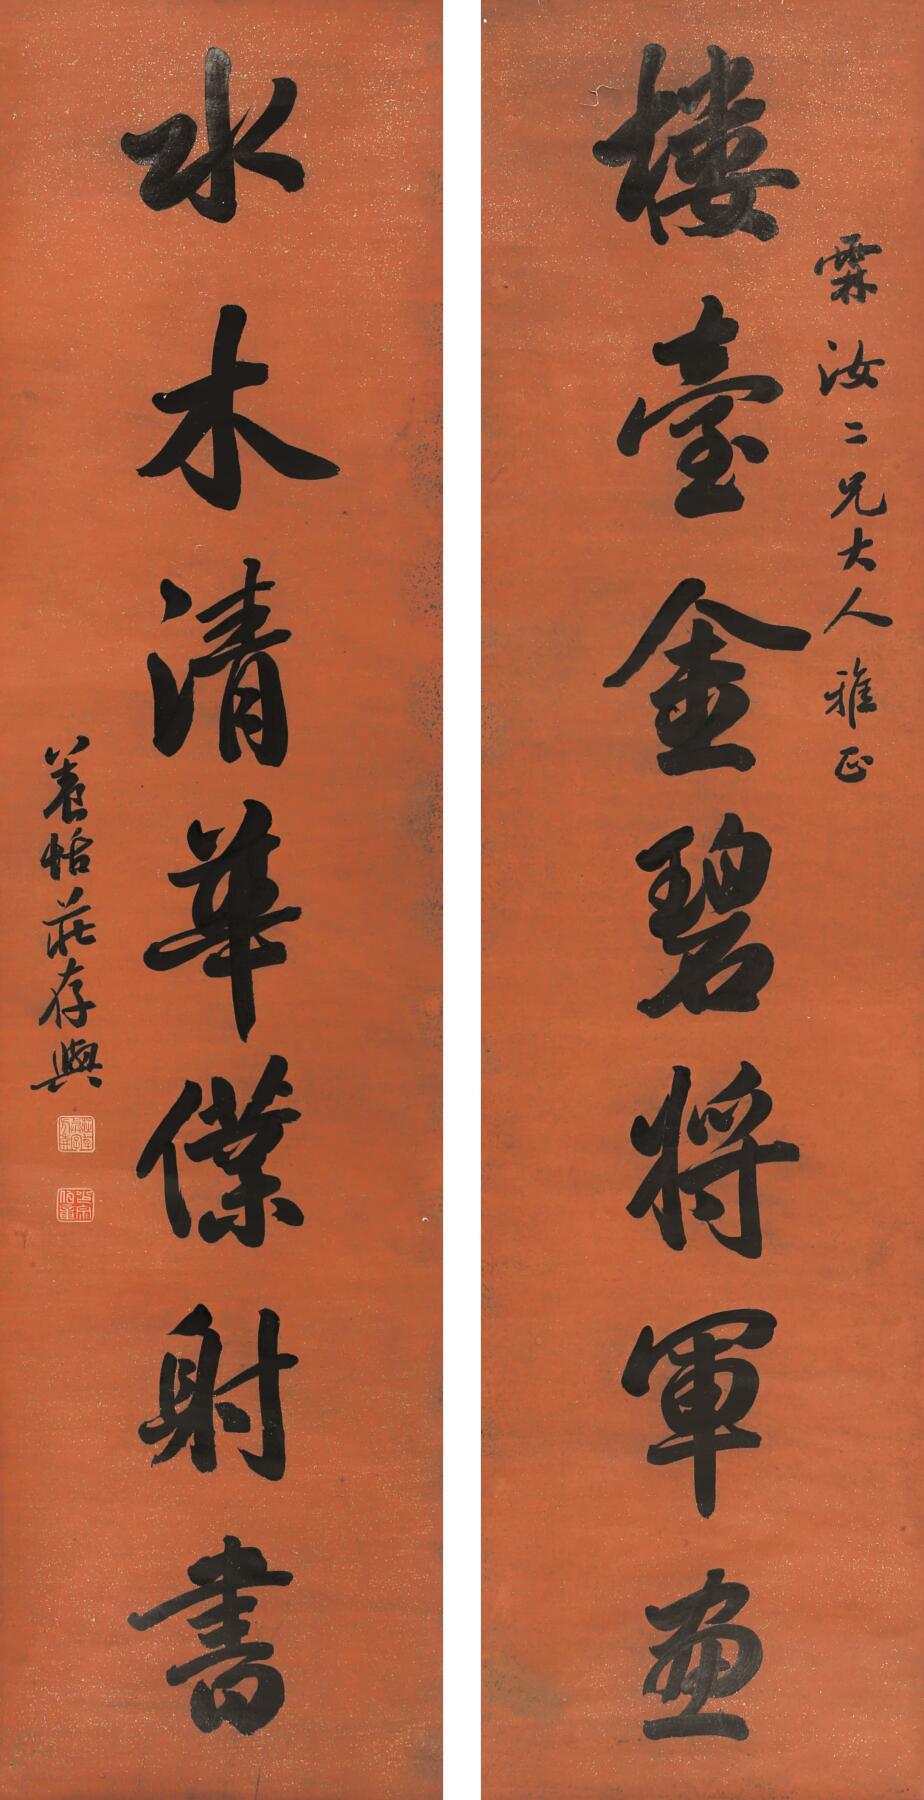 霖汝二兄大人雅正
楼臺金碧將軍畫
水木清華僕射書
養恬莊存與